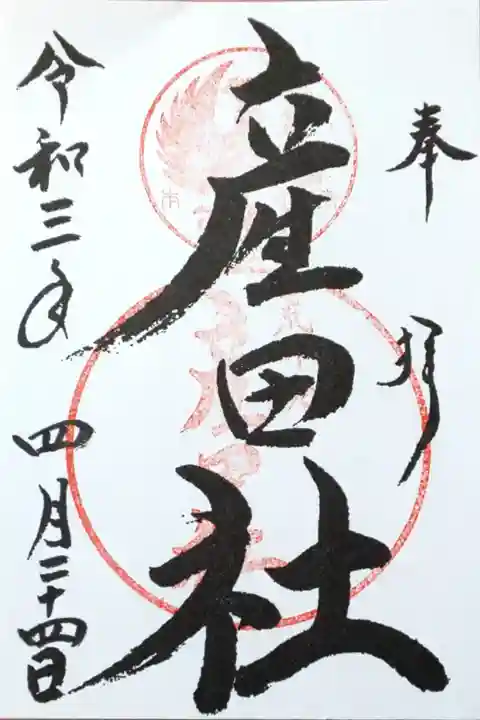 奉拝
産田社
令和三年 四月二十四日